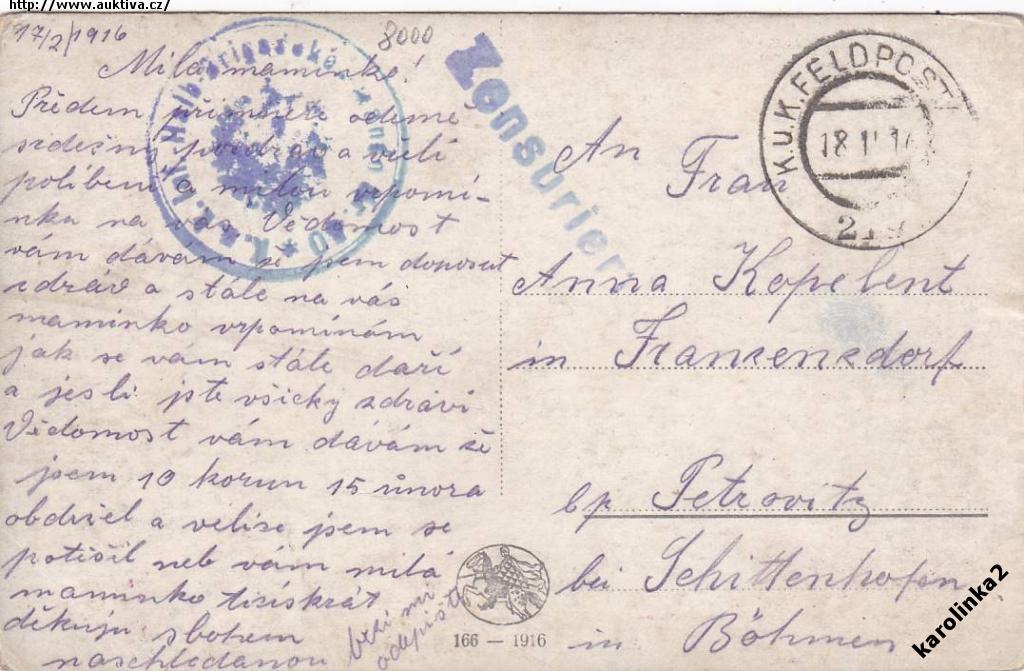 http://www.auktiva.cz/
17/2/1916
8000
Milá maminko!
Předem přijměte odemě
srdečný pozdrav a velí
políbení a milou vzpomí-
nka na vás Vědomost
vám dávám že jsem doposut
zdráv a stále na vás
maminko vzpomínám
jak se vám stále daří
a jesli jste všicky zdrávi
Vědomost vám dávám že
jsem 10 korun 15 února
obdržel a velice jsem se
potěšil neb vám milá
maminko tisíckrát
děkuju sbohem
naschledanou
mi
odepište
Zensuriert
K.U.K. FELDPOST
18 II 16
An
Frau
Anna Kopelent
in Fransensdorf
bp Petrovitz
bei Schittenhofen
in Böhmen
166 — 1916
karolinka2